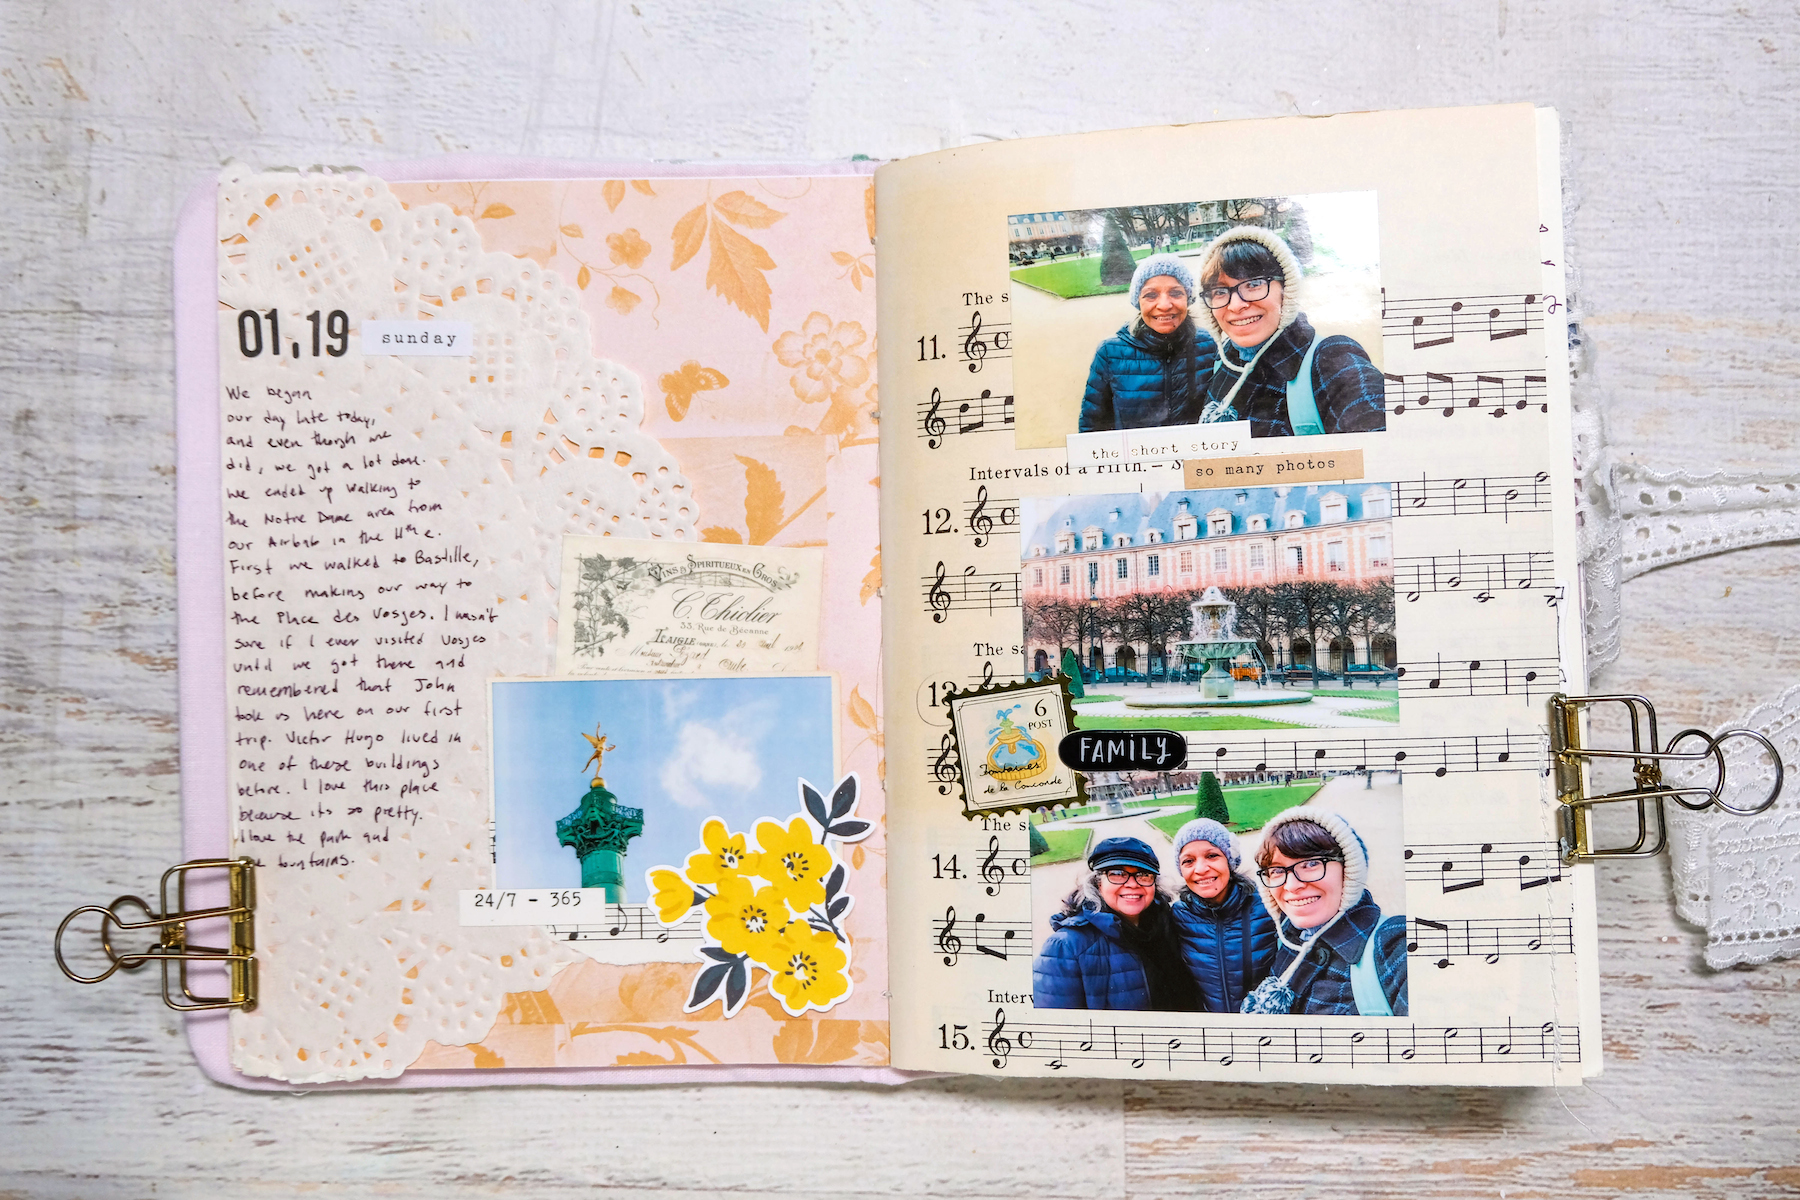 01.19
sunday
We began
our day late today,
and even though we
did, we got a lot done.
We ended up walking to
the Notre Dame area from
our Airbnb in the 11th.
First we walked to Bastille,
before making our way to
the Place des Vosges. I wasn't
sure if I ever visited Vosges
until we got there and
remembered that John
took us here on our first
trip. Victor Hugo lived in
one of these buildings
before. I love this place
because its so pretty.
I love the park and
fountains.
VINS & SPIRITUEUX EN GROS
C. Thiclier
33, Rue de Bécanne
LAIGLE
24/7 - 365
The s
11.
the short story
so many photos
Intervals of a Fifth. — S
12.
The sa
13
6
POST
Fontaines
de la Concorde
FAMILY
The sa
14.
Interv
15.